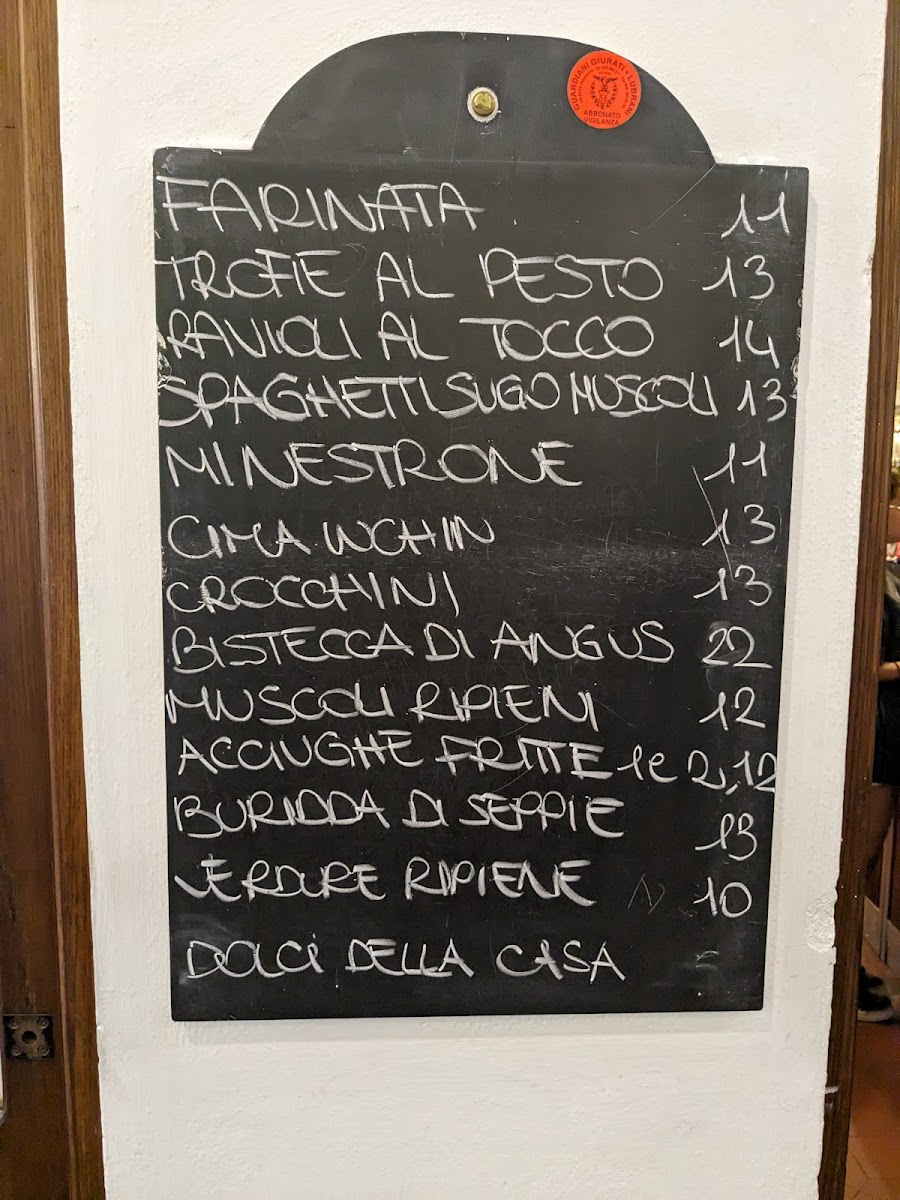 GUARDIANI GIURATI • LUBRANI
ABBONATO
VIGILANZA
FARINATA 11
TROFIE AL PESTO 13
RAVIOLI AL TOCCO 14
SPAGHETTI SUGO MUSCOLI 13
MINESTRONE 11
CIMA 13
CROCCHINI 13
BISTECCA DI ANGUS 22
MUSCOLI RIPIENI 12
ACCIUGHE FRITTE 12
BURIDDA DI SEPPIE 13
VERDURE RIPIENE 10
DOLCI DELLA CASA